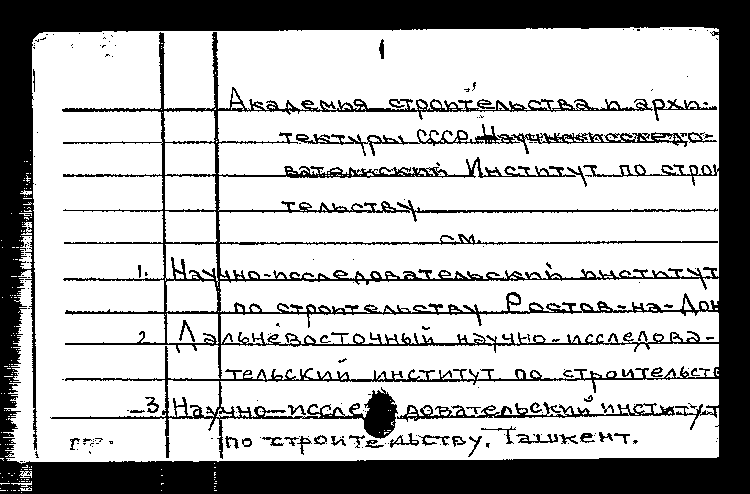 Академия строительства и архи-
тектуры СССР. Научноисследо-
вателиский Институт по строи
тельству.
см.
1. Научно-исследовательский институт
по строительству Ростов-на-Дон
2. Дальневосточный научно-исследова-
тельский институт по строительств
3. Научно-иссле довательский институт
по строительству. Ташкент.